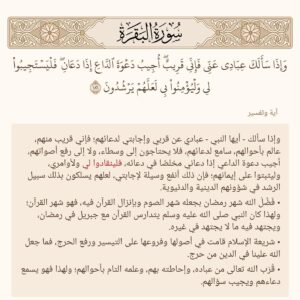 سُورَةُ الْبَقَرَةِ
وَإِذَا سَأَلَكَ عِبَادِي عَنِّي فَإِنِّي قَرِيبٌ أُجِيبُ دَعْوَةَ الدَّاعِ إِذَا دَعَانِ فَلْيَسْتَجِيبُوا
لِي وَلْيُؤْمِنُوا بِي لَعَلَّهُمْ يَرْشُدُونَ ١٨٦
آية وتفسير
وإذا سألك - أيها النبي - عبادي عن قربي وإجابتي لدعائهم؛ فإني قريب منهم،
عالم بأحوالهم، سامع لدعائهم، فلا يحتاجون إلى وسطاء، ولا إلى رفع أصواتهم،
أجيب دعوة الداعي إذا دعاني مخلصًا في دعائه، فلينقادوا لي ولأوامري،
وليثبتوا على إيمانهم؛ فإن ذلك أنفع وسيلة لإجابتي، لعلهم يسلكون بذلك سبيل
الرشد في شؤونهم الدينية والدنيوية.
• فَضَّل الله شهر رمضان بجعله شهر الصوم وبإنزال القرآن فيه، فهو شهر القرآن؛
ولهذا كان النبي صلى الله عليه وسلم يتدارس القرآن مع جبريل في رمضان،
ويجتهد فيه ما لا يجتهد في غيره.
• شريعة الإسلام قامت في أصولها وفروعها على التيسير ورفع الحرج، فما جعل
الله علينا في الدين من حرج.
• قُرْب الله تعالى من عباده، وإحاطته بهم، وعلمه التام بأحوالهم؛ ولهذا فهو يسمع
دعاءهم ويجيب سؤالهم.